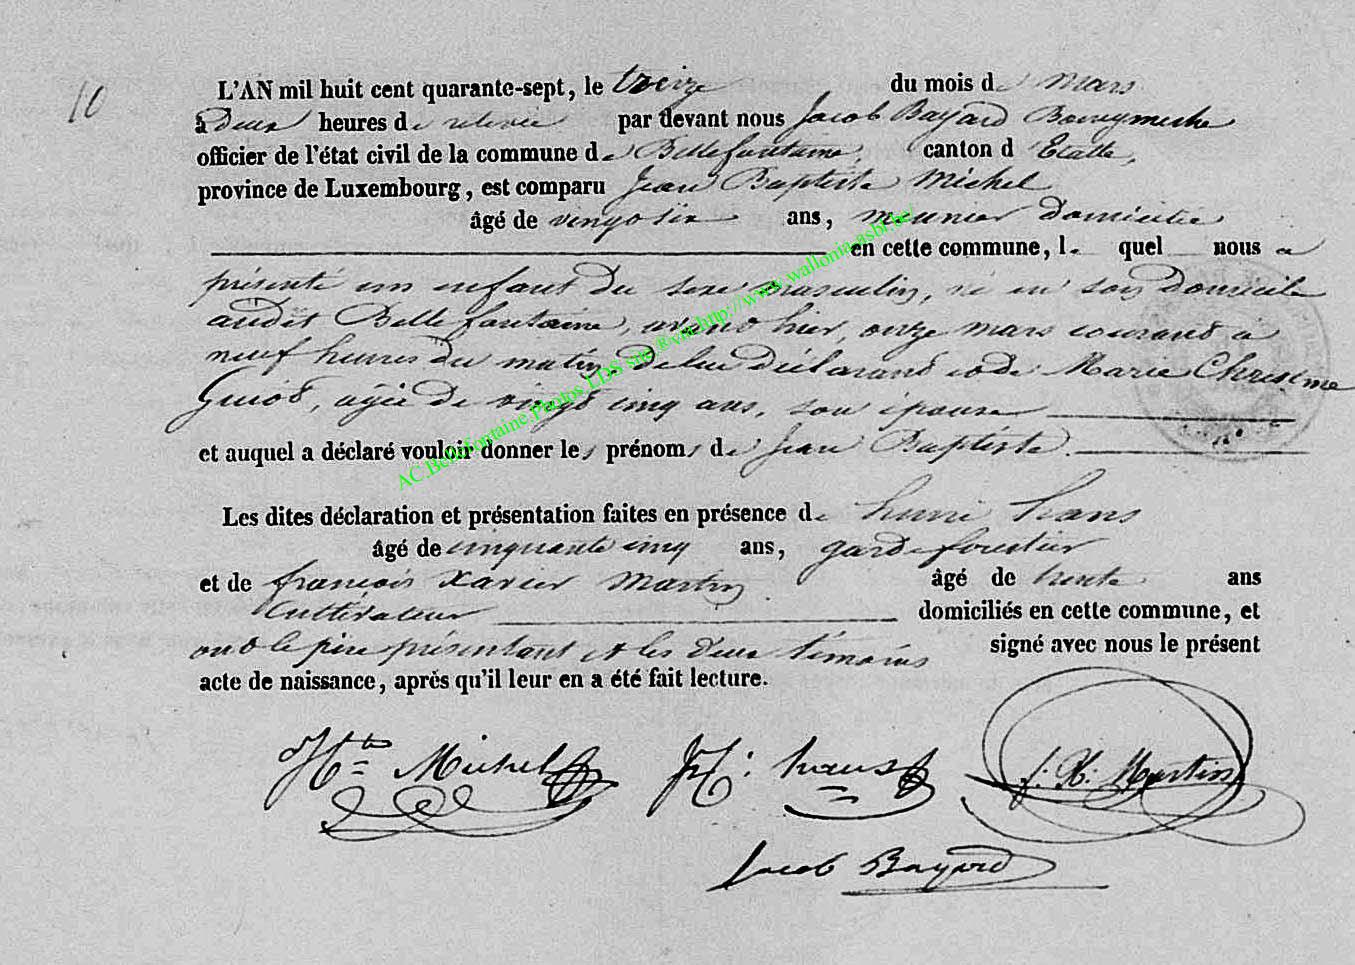 10
L'AN mil huit cent quarante-sept, le treize du mois de mars
à deux heures de relevée par devant nous Jacob Bayard Bourgmestre
officier de l'état civil de la commune de Bellefontaine, canton d'Etalle,
province de Luxembourg, est comparu Jean Baptiste Michel
âgé de ans, meunier domicilié
en cette commune, lequel nous a
présenté un enfant du sexe masculin, né en son domicile
audit Bellefontaine, avant hier, onze mars courant à
neuf heures du matin, de lui déclarant et de Marie Christine
Guiot, agée de vingt cinq ans, son épouse
et auquel a déclaré vouloir donner les prénoms de Jean Baptiste.
Les dites déclaration et présentation faites en présence de henri
âgé de cinquante cinq ans, garde forestier
et de françois Xavier Martin âgé de trente ans
Cultivateur domiciliés en cette commune, et
ont le père présentant et les deux témoins signé avec nous le présent
acte de naissance, après qu'il leur en a été fait lecture.
Michel
f: X: Martin
Jacob Bayard
AC.Bellefontaine.Photos LDS site ®via http://www.wallonia-asbl.be/